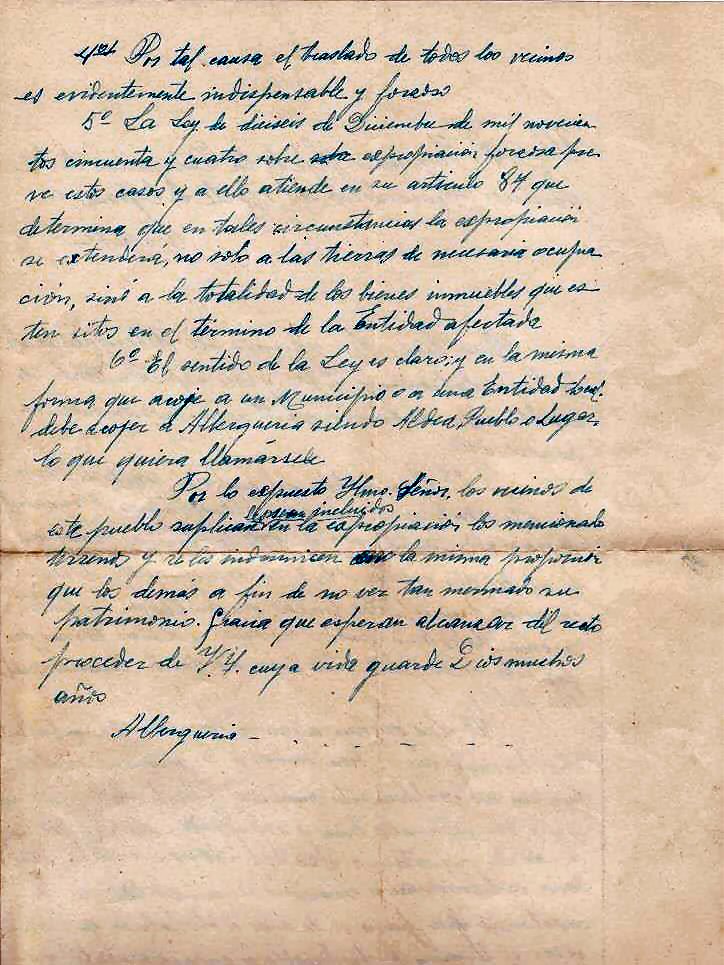 4º Por tal causa el traslado de todos los vecinos
es evidentemente indispensable y forzoso
5º La Ley de dieiseis de Diciembre de mil novecien
tos cincuenta y cuatro sobre expropiación forzosa pre
ve estos casos y a ello atiende en su articulo 87 que
determina, que en tales circunstancias la expropiación
se extenderá, no solo a las tierras de necesaria ocupa
ción, sinó a la totalidad de los bienes inmuebles que es
ten sitos en el término de la Entidad afectada
6º El sentido de la Ley es claro; y en la misma
forma que acoje a un Municipio o a una Entidad local.
debe acojer a Albergueria siendo Aldea, Pueblo o Lugar,
lo que quiera llamársele
Por lo expuesto Ylmo. Señor, los vecinos de
sean incluidos
este pueblo suplican en la expropiación los mencionado
terrenos y se les indemnicen la misma proporcion
que los demás a fin de no ver tan mermado su
patrimonio. Gracia que esperan alcanzar del recto
proceder de V.Y. cuya vida guarde Dios muchos
años
Alberguería -